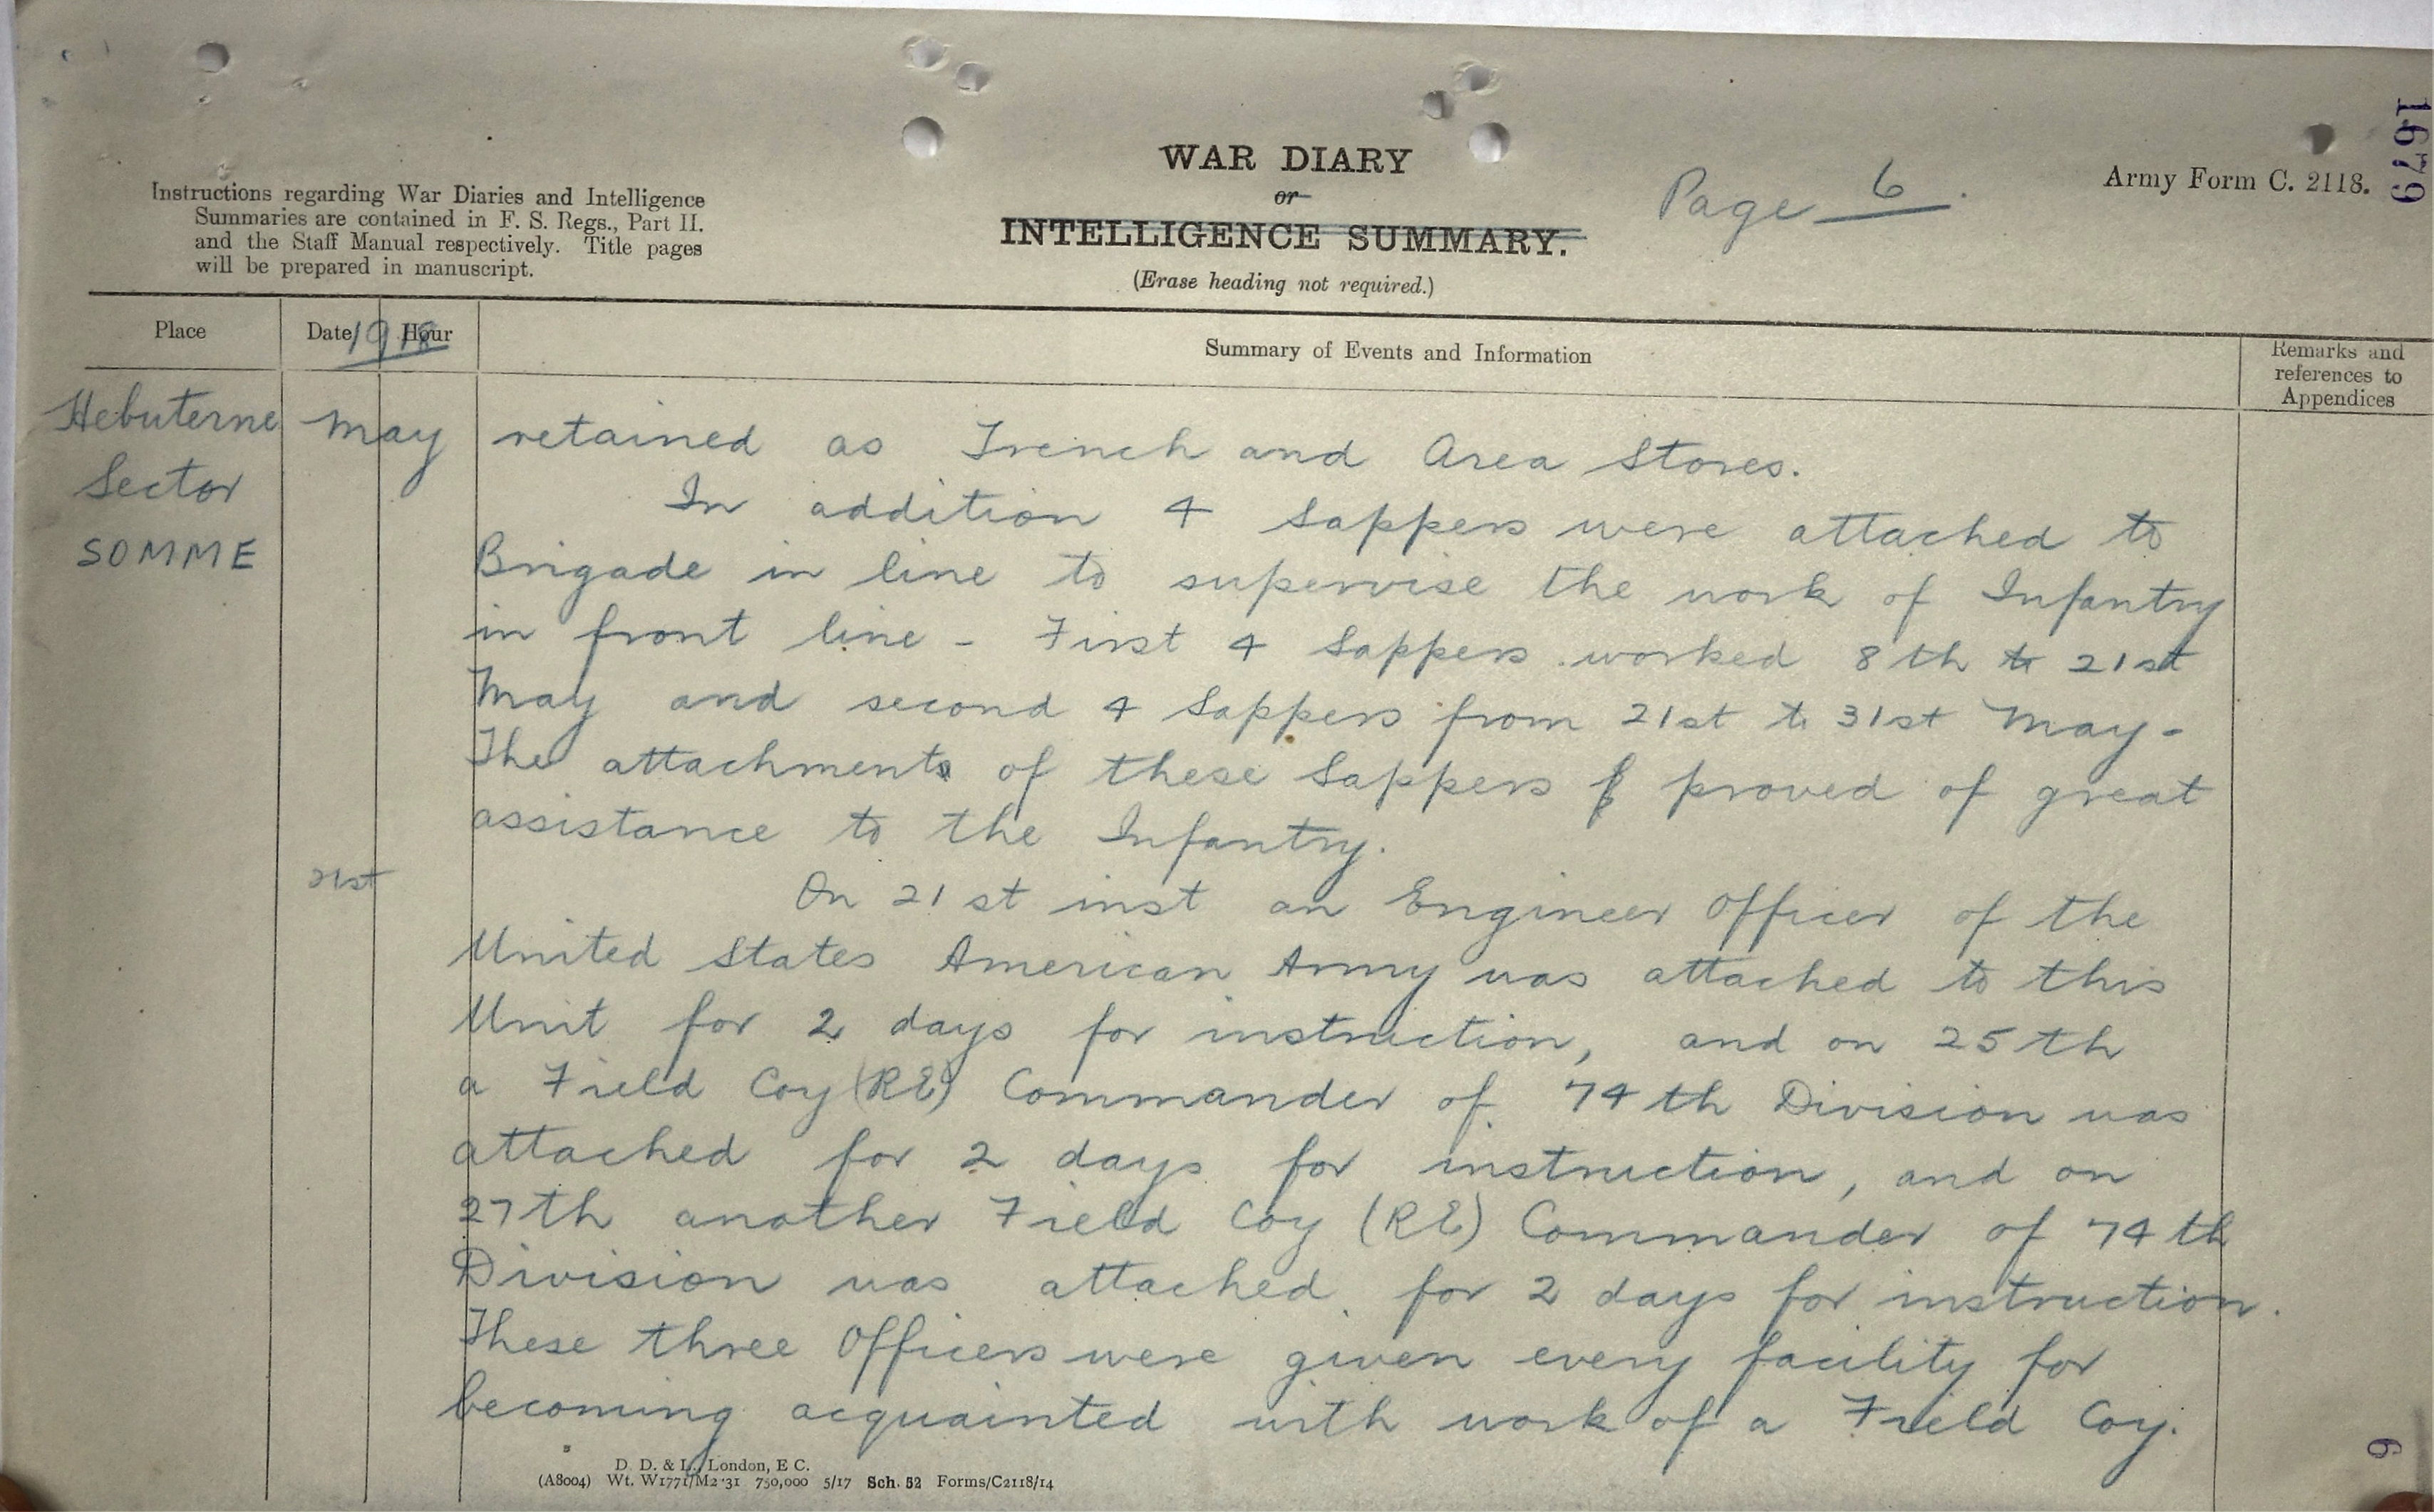 1679
Instructions regarding War Diaries and Intelligence
Summaries are contained in F. S. Regs., Part II.
and the Staff Manual respectively. Title pages
will be prepared in manuscript.
WAR DIARY
or
INTELLIGENCE SUMMARY.
(Erase heading not required.)
Page 6.
Army Form C. 2118.
Place
Date
1918
Hour
Summary of Events and Information
Remarks and
references to
Appendices
Hebuterne
Sector
SOMME
May
retained as Trench and Area Stores.
In addition 4 Sappers were attached to
Brigade in line to supervise the work of Infantry
in front line - First 4 Sappers worked 8th to 21st
May and second 4 Sappers from 21st to 31st May -
The attachments of these Sappers proved of great
assistance to the Infantry.
21st
On 21st inst an Engineer Officer of the
United States American Army was attached to this
Unit for 2 days for instruction, and on 25th
a Field Coy (RE) Commander of 74th Division was
attached for 2 days for instruction, and on
27th another Field Coy (RE) Commander of 74th
Division was attached for 2 days for instruction.
These three Officers were given every facility for
becoming acquainted with work of a Field Coy.
D. D. & L., London, E C.
(A8004) Wt. W1771/M2·31 750,000 5/17 Sch. 52 Forms/C2118/14
6